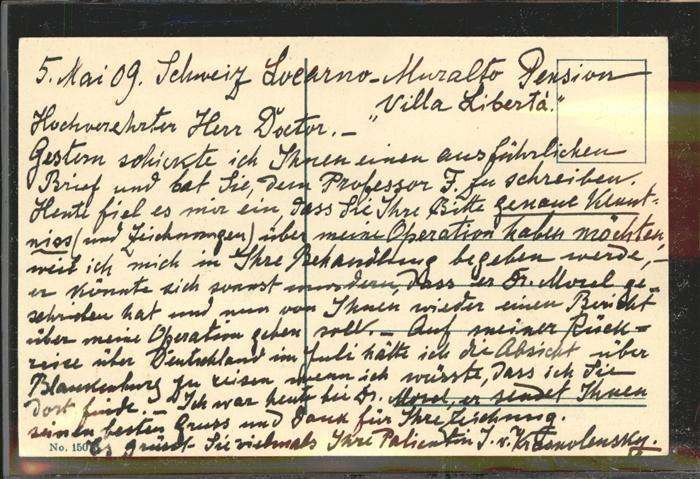 5. Mai 09. Schweiz Locarno-Muralto Pension
"Villa Libertá."
Hochverehrter Herr Doctor. –
Gestern schickte ich Ihnen einen ausführlichen
Brief und bat Sie, dem Professor F. zu schreiben.
Heute fiel es mir ein, dass Sie Ihre Bitte genaue Kennt-
niss (und Zeichnungen) über meine Operation haben möchten,
weil ich mich in Ihre Behandlung begeben werde, –
er könnte sich sonst wundern, dass er Dr. Morel ge-
schrieben hat und nun von Ihnen wieder einen Bericht
über meine Operation geben soll. – Auf meiner Rück-
reise über Deutschland im Juli hätte ich die Absicht über
Blankenburg zu reisen wenn ich wüsste, dass ich Sie
dort finde. – Ich war heute bei Dr. Morel, er sendet Ihnen
seinen besten Gruss und Dank für Ihre Zeichnung.
Es grüsst Sie vielmals Ihre Patientin J. v.
No. 150